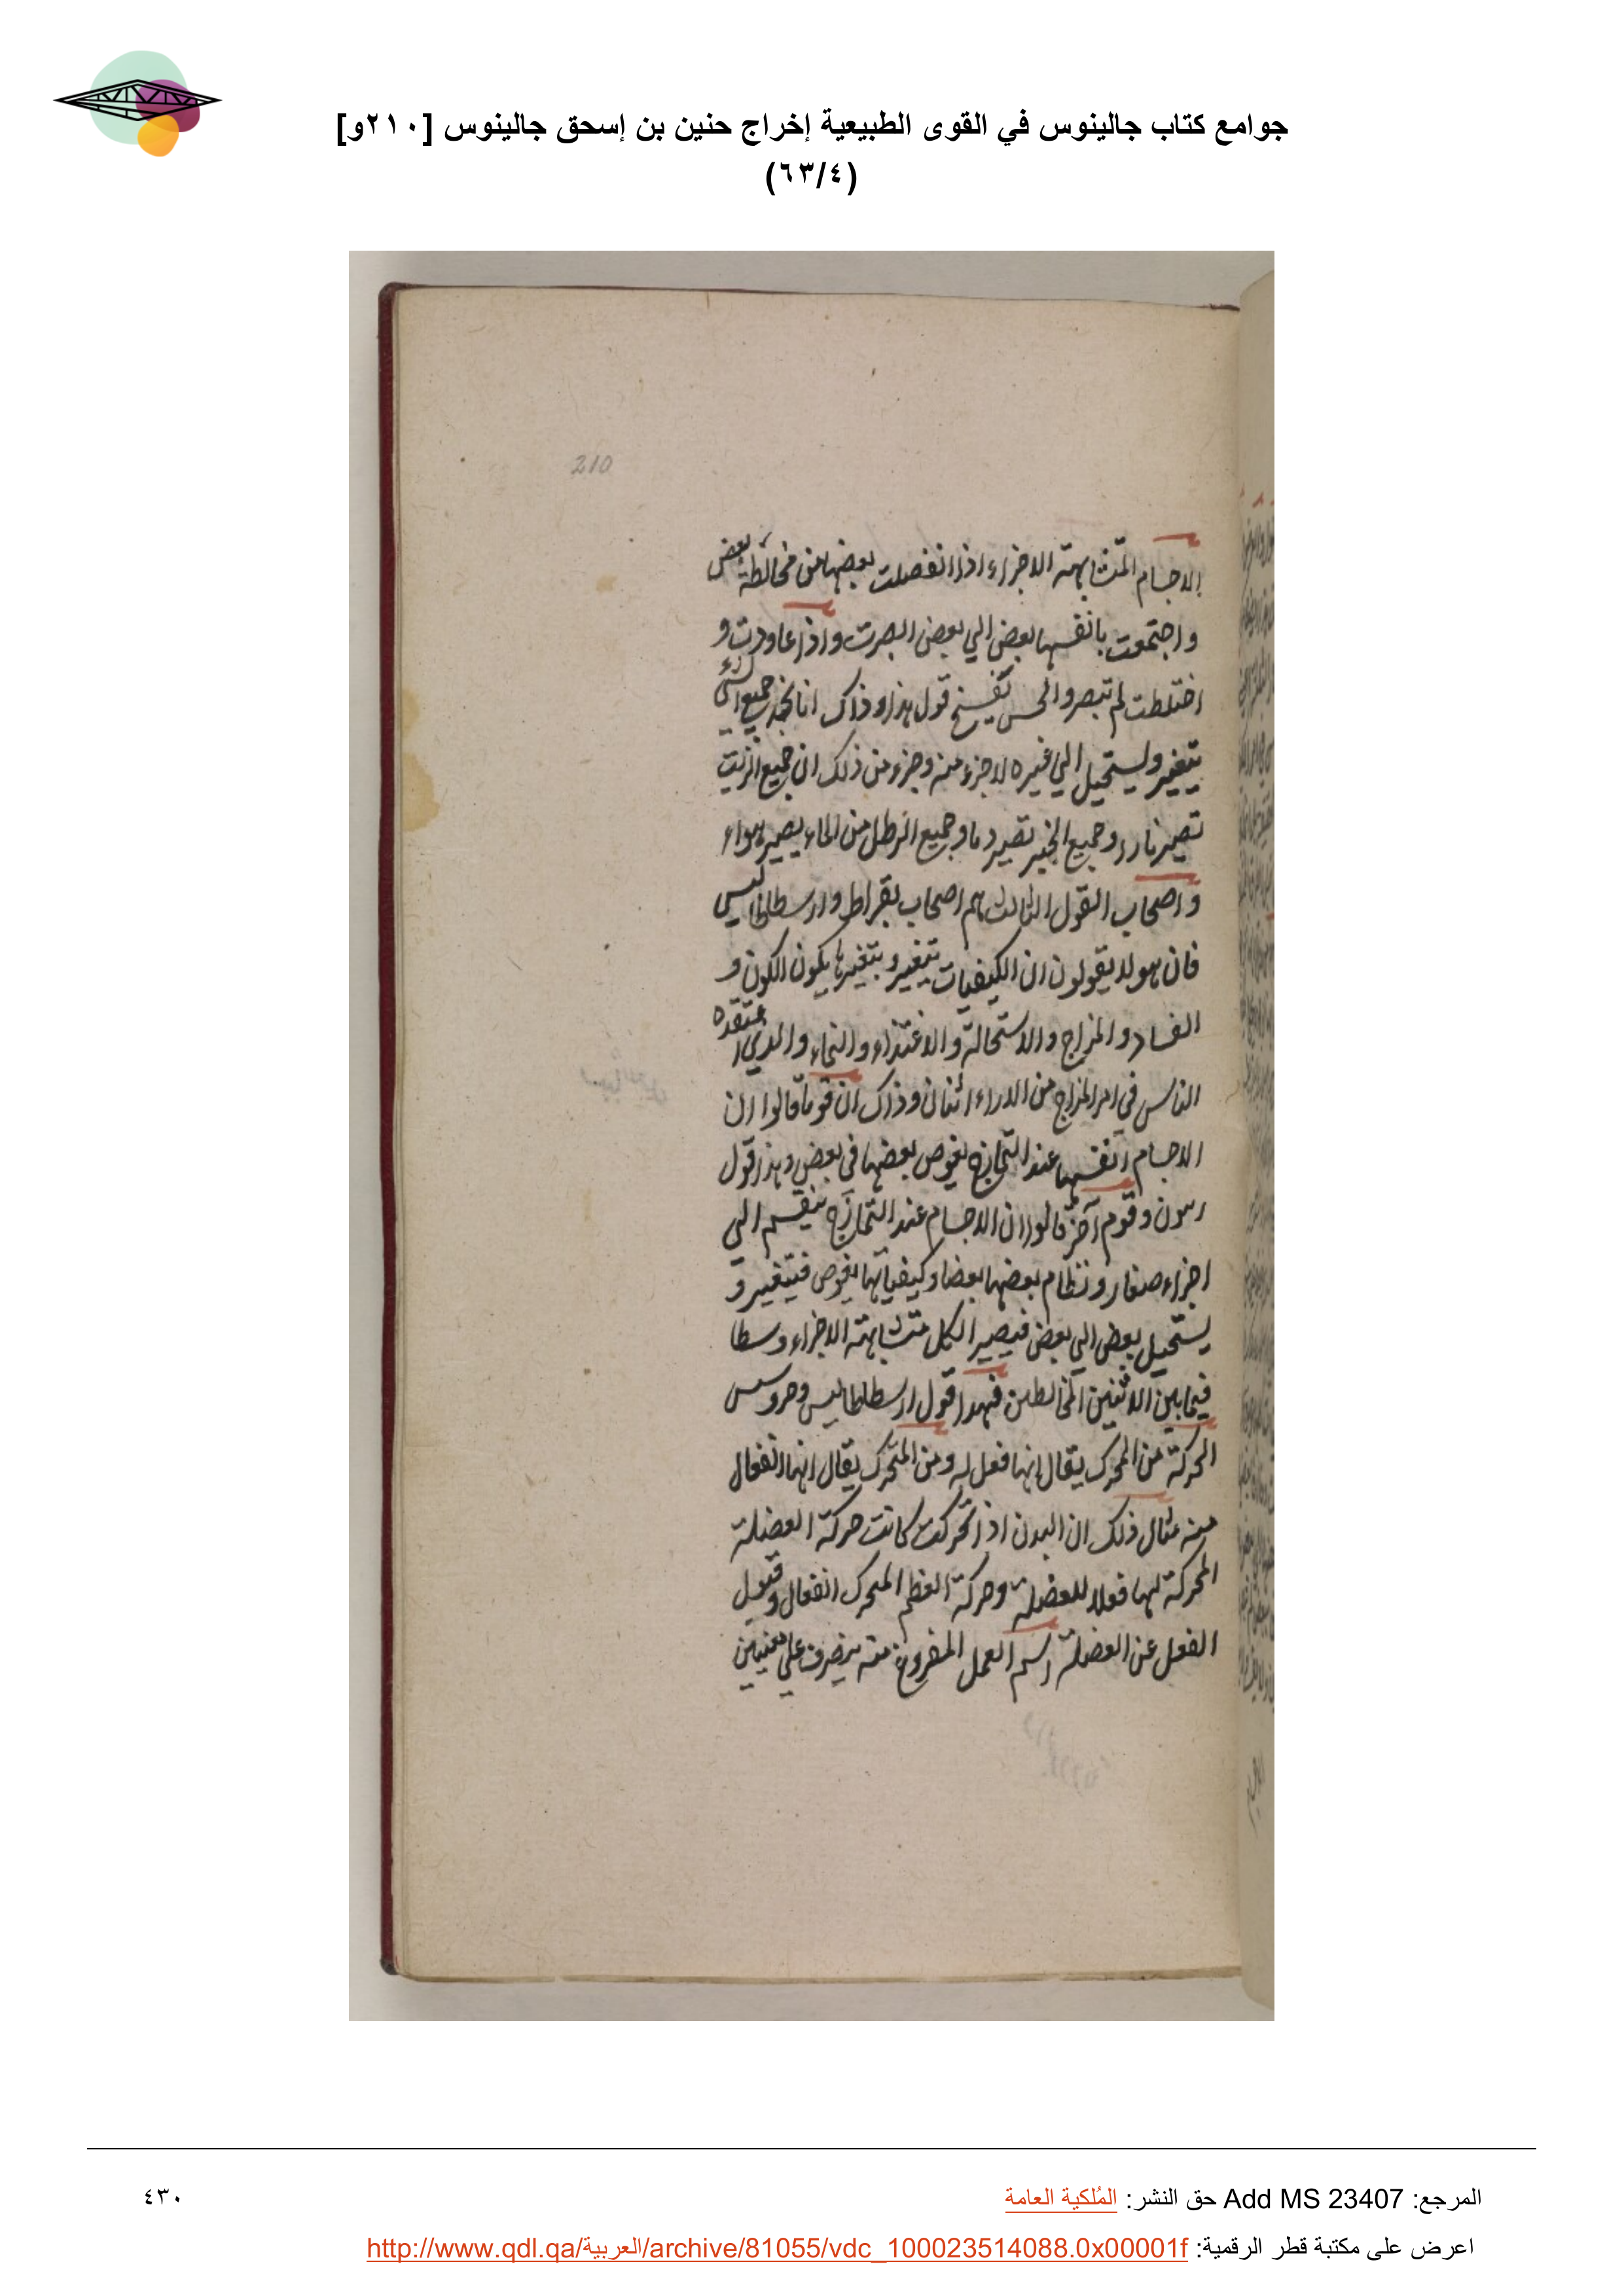 جوامع كتاب جالينوس في القوى الطبيعية إخراج حنين بن إسحق جالينوس [٢١٠و]
(٦٣/٤)
210
الاجسام المتشابهة الاجزاء اذا انفصلت بعضها من مخالطة بعض
واجتمعت بانفسها بعض الي بعض ابصرت واذا عاودت و
اختلطت لم تبصر والحس يفسخ قول هذا وذاك انا نجد جميع الشيء
يتغير ويستحيل الي غيره لا جزء منه وجزء من ذلك ان جميع الزيت
تصير نارا وجميع الخبز تصير دما وجميع الرطل من الماء يصير هواء
واصحاب القول الثالث هم اصحاب بقراط وارسطاطاليس
فان هولا يقولون ان الكيفيات تتغير وبتغيرها يكون الكون و
الفساد والمزاج والاستحالة والاغتذاء والنماء والذي اعتقده
الناس في امر المزاج من الاراء اثنان وذاك ان قوما قالوا ان
الاجسام انفسها عند التمازج يغوص بعضها في بعض وهذا قول
رسون وقوم آخر قالوا ان الاجسام عند التمازج ينقسم الي
اجزاء صغار ونظام بعضها بعضا وكيفياتها يغوص فيتغير و
يستحيل بعض الي بعض فيصير الكل متشابهة الاجزاء وسطا
فيما بين الاثنين المخالطين فهذا قول ارسطاطاليس وحروسس
الحركة من المحرك يقال انها فعل له ومن المتحرك يقال انها انفعال
منه مثال ذلك ان البدن اذا تحركت كانت حركة العضلة
المحركة لها فعلا للعضلة وحركة العظم المتحرك انفعال وقبول
الفعل عن العضلة اسم العمل المفروغ منه يصرف علي معنيين
المرجع: Add MS 23407 حق النشر: المُلكية العامة
٤٣٠
اعرض على مكتبة قطر الرقمية: http://www.qdl.qa/العربية/archive/81055/vdc_100023514088.0x00001f